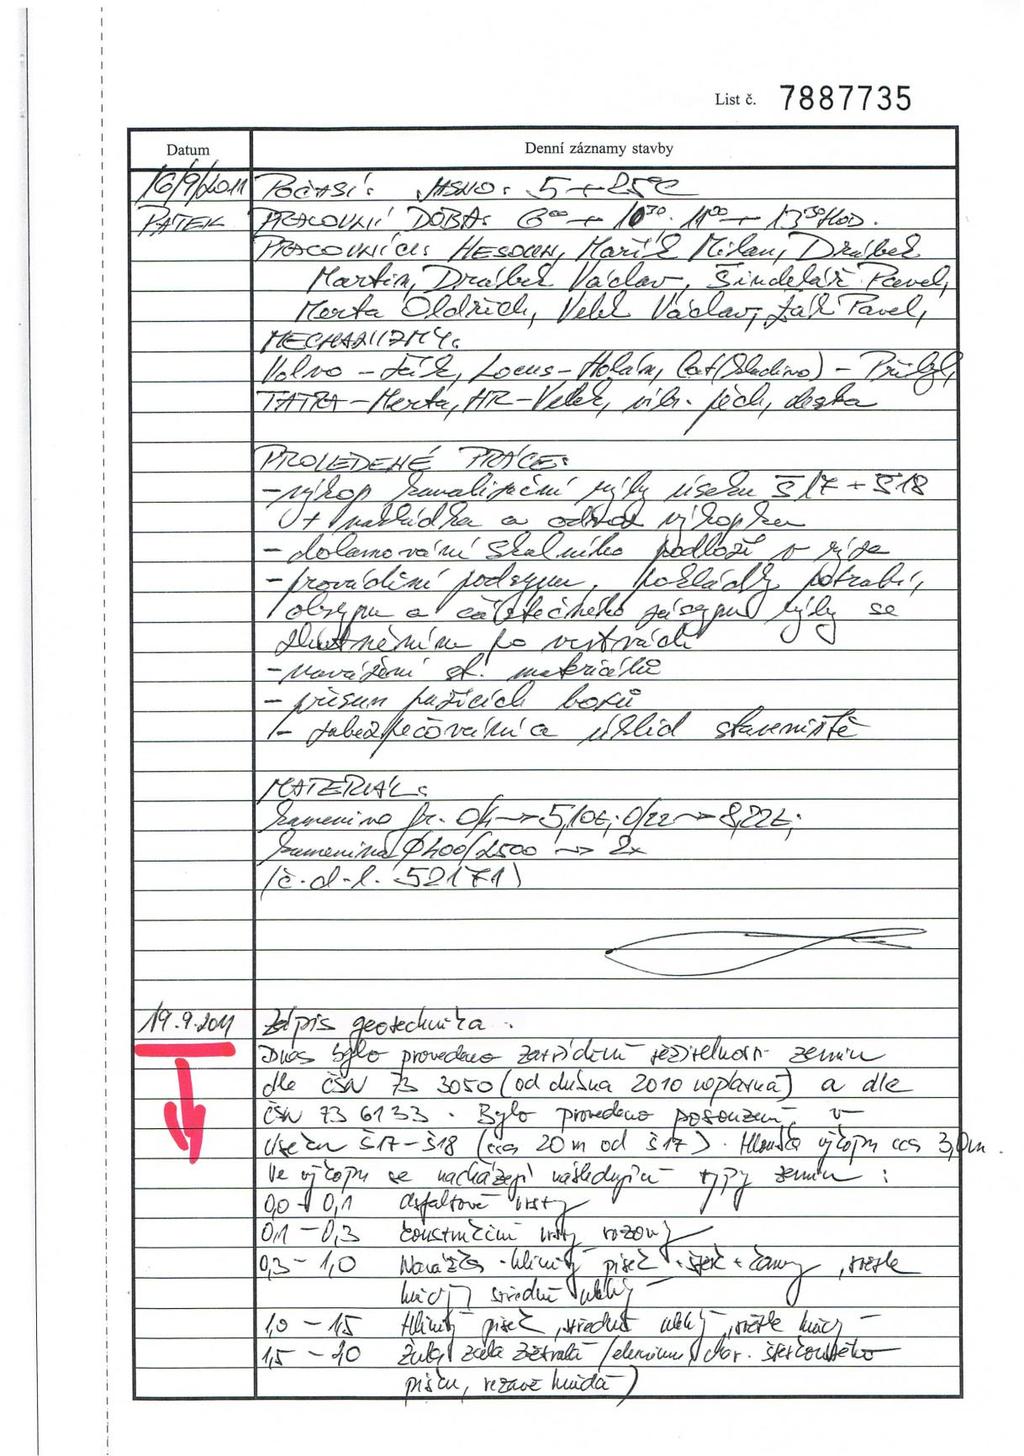 List č. 7887735
Datum
Denní záznamy stavby
16/9/2011 POČASÍ: JASNO: 5 → 25°C
PÁTEK PRACOVNÍ DOBA: 6⁰⁰ → 10³⁰. 11⁰⁰ → 13³⁰ HOD.
PRACOVNÍCI: HESOUN, Mařík Milan, Drábek
Martin, Drábek Václav, Šindelář Pavel,
Merta Oldřich, Velek Václav, Žák Pavel,
MECHANIZMY:
Volvo - Žák, Locus - Holán, - Přibyl,
TATRA - Merta, HR - Velek, vibr. pěch, deska
PROVEDENÉ PRÁCE:
- výkop kanalizační rýhy úseku Š17 + Š18
+ nakládka a odvoz výkopku
- dolamování skalního podloží v rýze
- provádění podsypu, pokládky potrubí,
obsypu a částečného zásypu rýhy se
zhutněním po vrstvách
- navážení st. materiálů
- přesun pažících boxů
- zabezpečování a úklid staveniště
MATERIÁL:
kamenivo fr. 0/4 → 5,10t; 0/22 → 8,22t;
kamenina φ400/2500 → 2x
(č.d.l. 52171)
19.9.2011 Zápis geotechnika:
Dnes bylo provedeno zatřídění těžitelnosti zemin
dle ČSN 73 3050 (od dubna 2010 neplatná) a dle
ČSN 73 6133. Bylo provedeno posouzení v
úseku Š17-Š18 (cca 20m od Š17). Hloubka výkopu cca 3,0m.
Ve výkopu se nacházejí následující typy zemin:
0,0 - 0,1 asfaltové vrstvy
0,1 - 0,3 konstrukční vrstvy vozovky
0,3 - 1,0 Navážka - hlinitý písek + štěrk + kameny, světle
hnědý, středně ulehlý
1,0 - 1,5 Hlinitý písek, středně ulehlý, světle hnědý
1,5 - 2,0 Žula, zcela zvětralá (eluvium char. štěrkovitého
písku, rezavě hnědá)